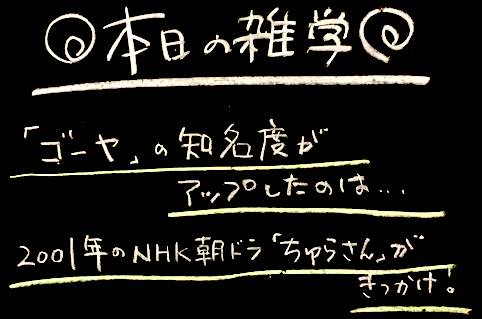 本日の雑学
「ゴーヤ」の知名度が
アップしたのは...
2001年のNHK朝ドラ「ちゅらさん」が
きっかけ!